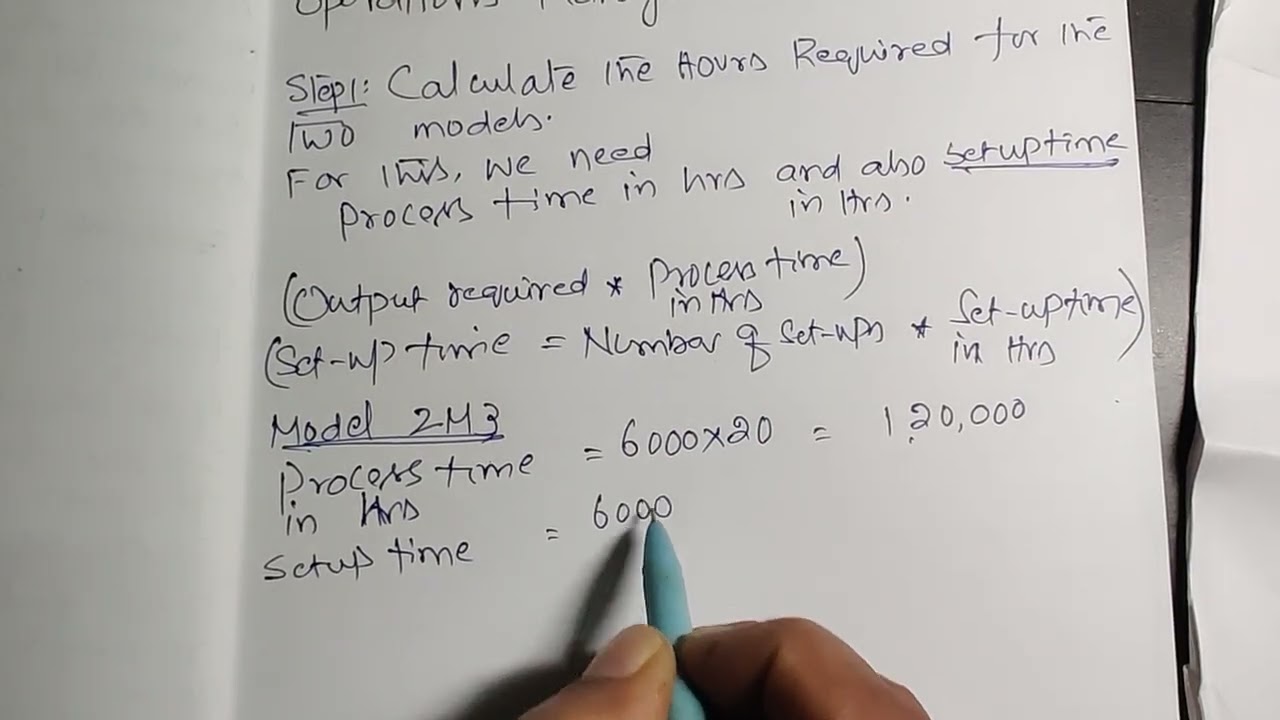 Operations
Step1: Calculate the Hours Required for the
Two models.
For This, we need
process time in hrs and also setuptime
in Hrs.
(Output required * Process time)
in Hrs
(Set-up time = Number of Set-ups * Set-uptime)
in Hrs
Model 2M3
Process time = 6000x20 = 1,20,000
in Hrs
Setup time = 6000